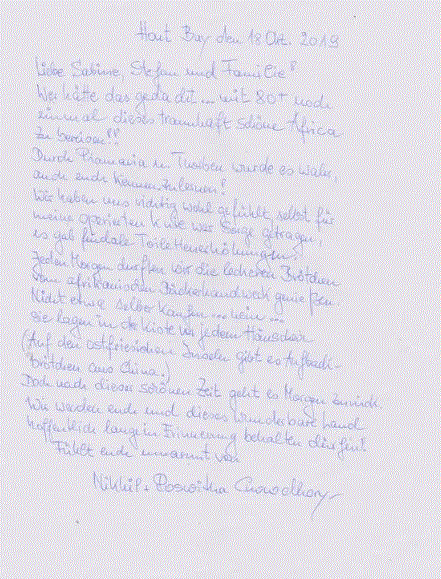 Hout Bay den 18 Okt. 2019
Liebe Sabine, Stefan und Familie!
Wer hätte das gedacht ... mit 80+ noch
einmal dieses traumhaft schöne Africa
zu bereisen!!
Durch u. Thorben wurde es wahr,
auch euch kennenzulernen!
Wir haben uns richtig wohl gefühlt, selbst für
meine operierten Knie war Sorge getragen,
es gab feudale Toilettenerhöhungen.
Jeden Morgen durften wir die leckeren Brötchen
vom afrikanischen Bäckerhandwerk genießen.
Nicht etwa selber kaufen ... nein ...
sie lagen in der Kiste vor jedem Häuschen
(Auf den ostfriesischen Inseln gibt es Aufback-
Brötchen aus China.)
Doch nach dieser schönen Zeit geht es Morgen zurück.
Wir werden euch und dieses wunderbare Land
hoffentlich lange in Erinnerung behalten dürfen!
Fühlt euch umarmt von
Nikhil + Roswitha Chowdhory